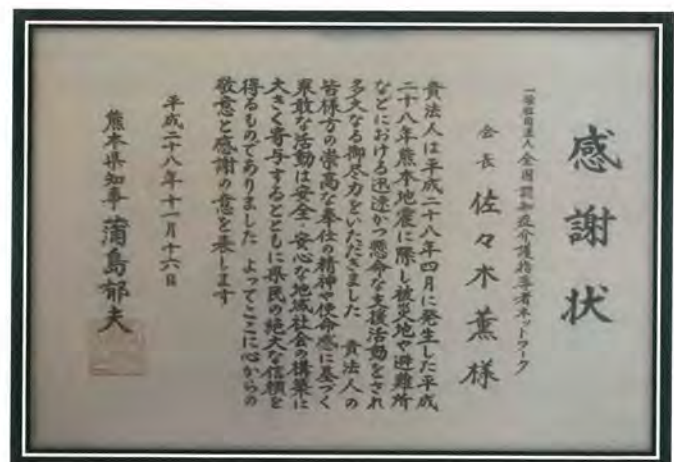 感謝状
一般社団法人 全国認知症介護指導者ネットワーク
会長 佐々木薫様
貴法人は平成二十八年四月に発生した平成
二十八年熊本地震に際し被災地や避難所
などにおける迅速かつ懸命な支援活動をされ
多大なる御尽力をいただきました 貴法人の
皆様方の崇高な奉仕の精神や使命感に基づく
果敢な活動は安全・安心な地域社会の構築に
大きく寄与するとともに県民の絶大な信頼を
得るものでありました よってここに心からの
敬意と感謝の意を表します
平成二十八年十一月十六日
熊本県知事 蒲島郁夫